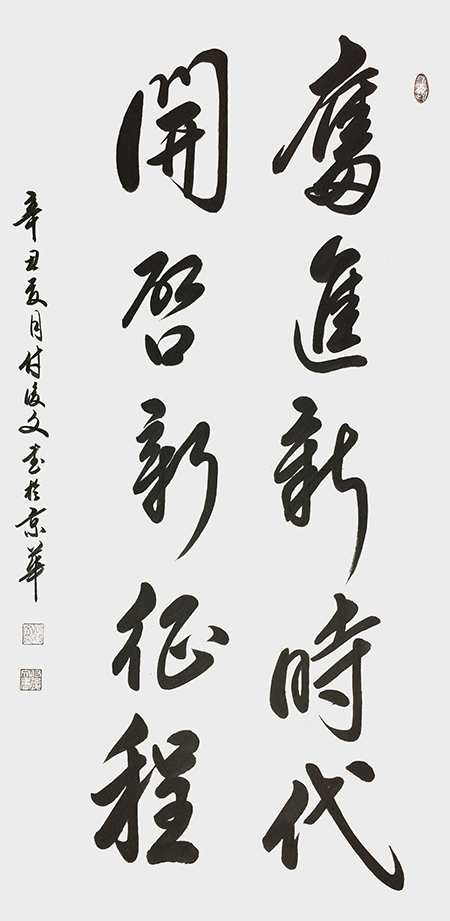 奮進新時代
開啓新征程
辛丑夏月付俊文书於京華